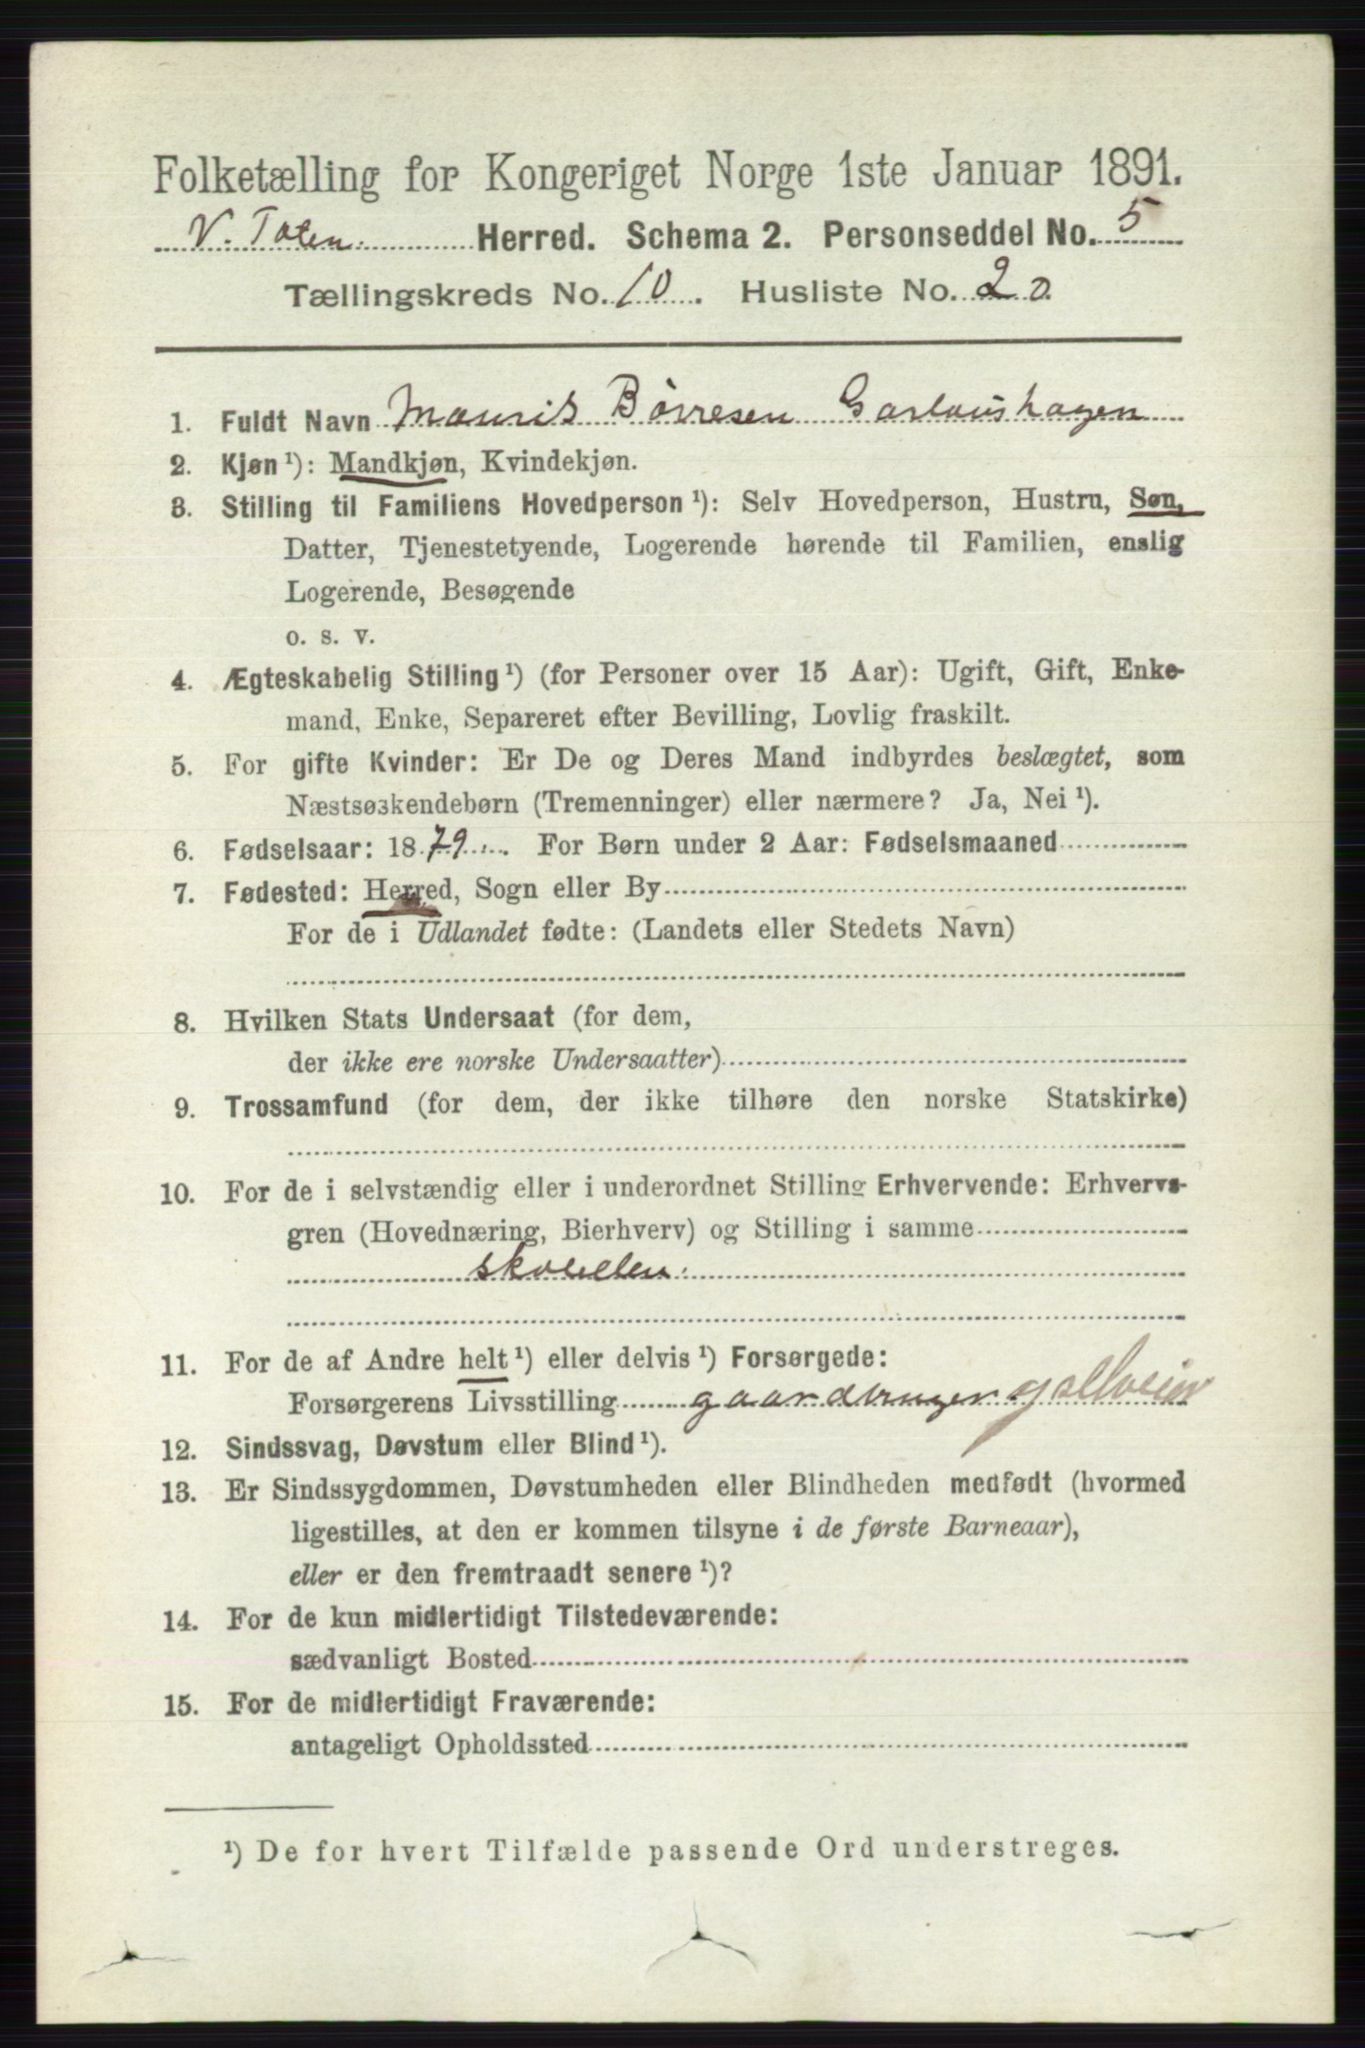 Folketælling for Kongeriget Norge 1ste Januar 1891.
V. Toten Herred. Schema 2. Personseddel No. 5
Tællingskreds No. 10. Husliste No. 20.
1. Fuldt Navn Mauris Børresen
2. Kjøn ¹): Mandkjøn, Kvindekjøn.
3. Stilling til Familiens Hovedperson ¹): Selv Hovedperson, Hustru, Søn,
Datter, Tjenestetyende, Logerende hørende til Familien, enslig
Logerende, Besøgende
o. s. v.
4. Ægteskabelig Stilling ¹) (for Personer over 15 Aar): Ugift, Gift, Enke-
mand, Enke, Separeret efter Bevilling, Lovlig fraskilt.
5. For gifte Kvinder: Er De og Deres Mand indbyrdes beslægtet, som
Næstsøskendebørn (Tremenninger) eller nærmere? Ja, Nei ¹).
6. Fødselsaar: 1879. For Børn under 2 Aar: Fødselsmaaned
7. Fødested: Herred, Sogn eller By
For de i Udlandet fødte: (Landets eller Stedets Navn)
8. Hvilken Stats Undersaat (for dem,
der ikke ere norske Undersaatter)
9. Trossamfund (for dem, der ikke tilhøre den norske Statskirke)
10. For de i selvstændig eller i underordnet Stilling Erhvervende: Erhvervs-
gren (Hovednæring, Bierhverv) og Stilling i samme
11. For de af Andre helt ¹) eller delvis ¹) Forsørgede:
Forsørgerens Livsstilling gaardbruger selveier
12. Sindssvag, Døvstum eller Blind ¹).
13. Er Sindssygdommen, Døvstumheden eller Blindheden medfødt (hvormed
ligestilles, at den er kommen tilsyne i de første Barneaar),
eller er den fremtraadt senere ¹)?
14. For de kun midlertidigt Tilstedeværende:
sædvanligt Bosted
15. For de midlertidigt Fraværende:
antageligt Opholdssted
¹) De for hvert Tilfælde passende Ord understreges.